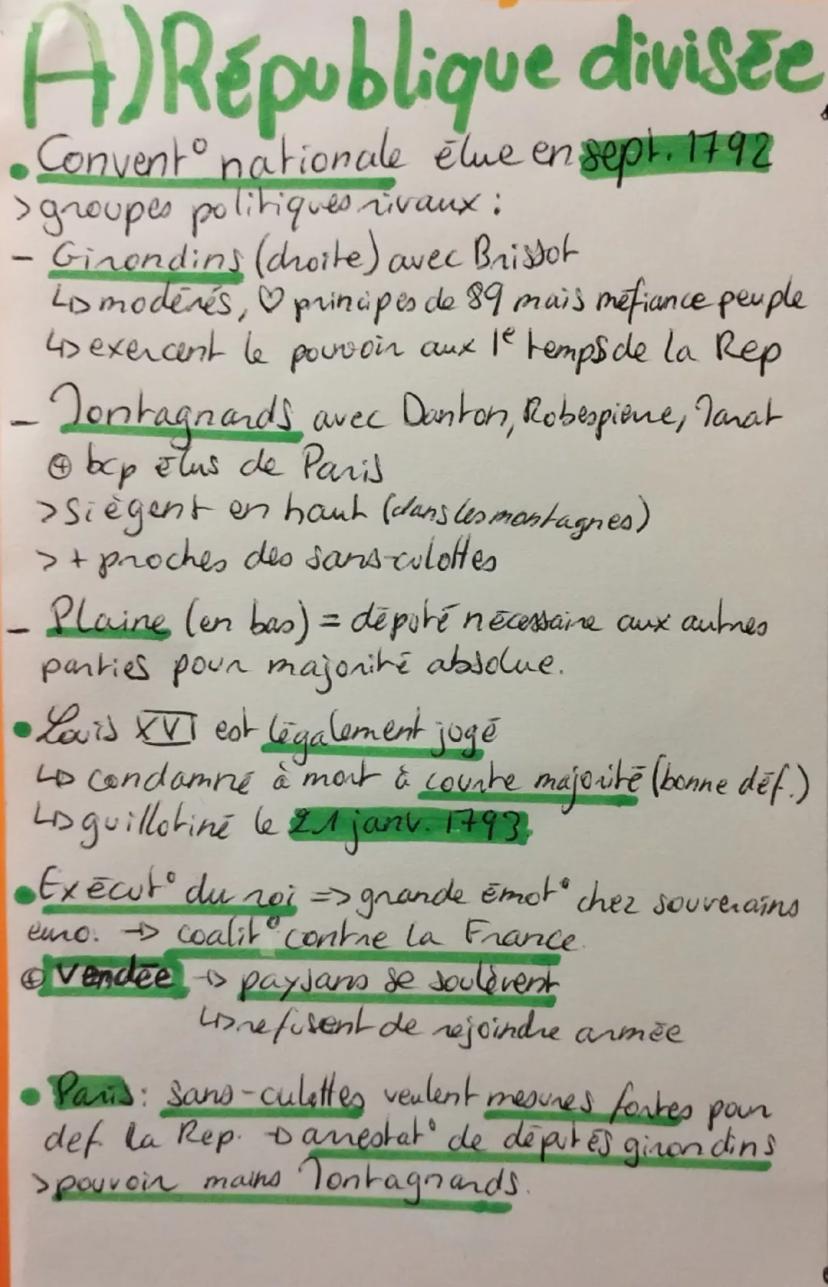 A) République divisée
• Convent° nationale élue en sept. 1792
> groupes politiques rivaux :
- Girondins (droite) avec Brissot
↳ modérés, ♡ principes de 89 mais méfiance peuple
↳ exercent le pouvoir aux 1e temps de la Rep
- Montagnards avec Danton, Robespierre, Marat
⊕ bcp élus de Paris
> siègent en haut (dans les montagnes)
> + proches des sans-culottes
- Plaine (en bas) = député nécessaire aux autres
parties pour majorité absolue.
• Louis XVI est légalement jugé
↳ condamné à mort à courte majorité (bonne déf.)
↳ guillotiné le 21 janv. 1793.
• Exécut° du roi => grande émot° chez souverains
euro. → coalit° contre la France.
⊕ Vendée → paysans se soulèvent
↳ refusent de rejoindre armée
• Paris : sans-culottes veulent mesures fortes pour
def la Rep. → arrestat° de députés girondins
> pouvoir mains Montagnards.